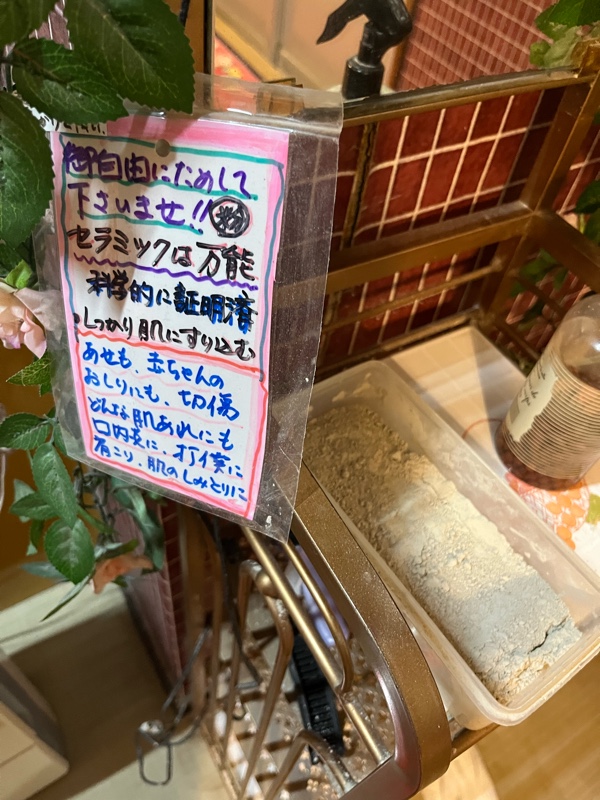 御自由にためして
下さいませ!!粉
セラミックは万能
科学的に証明済
・しっかり肌にすり込む
あせも、赤ちゃんの
おしりにも、切傷
どんな肌あれにも
口内炎に、打僕に
肩こり、肌のしみとりに